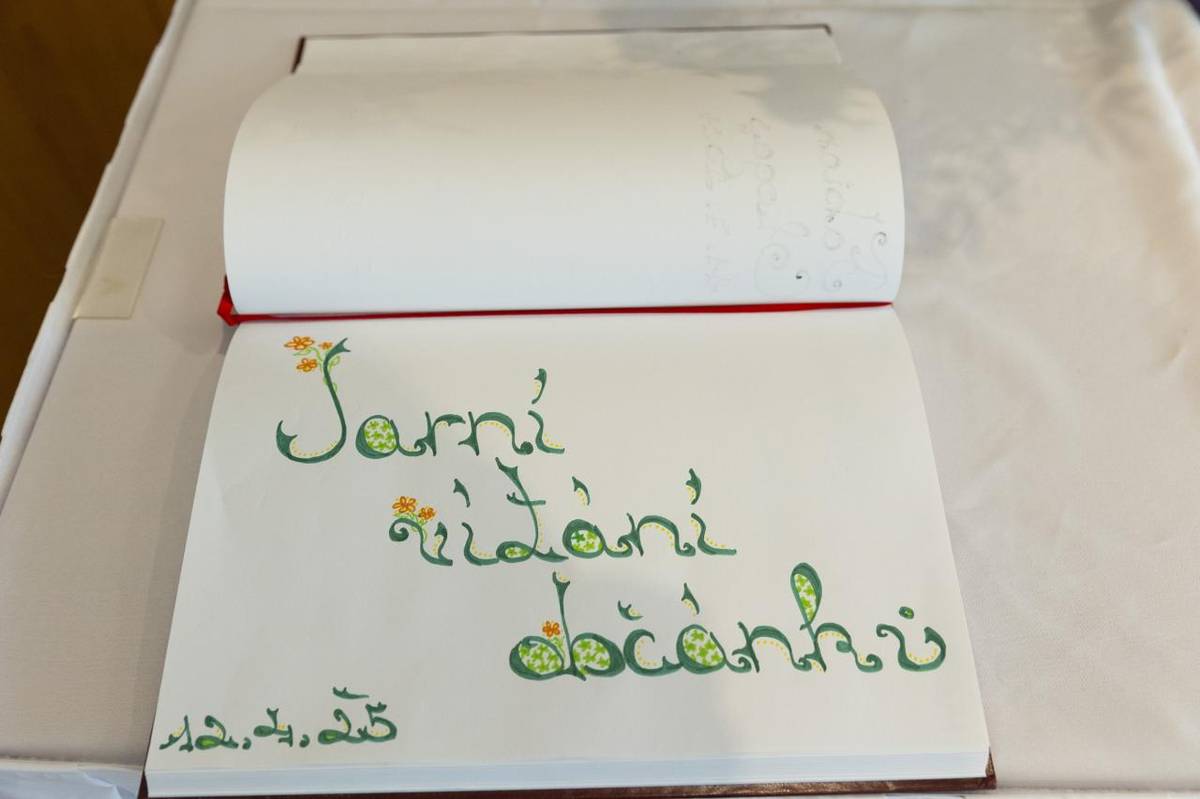 Jarní
vítání
občánků
12.4.25